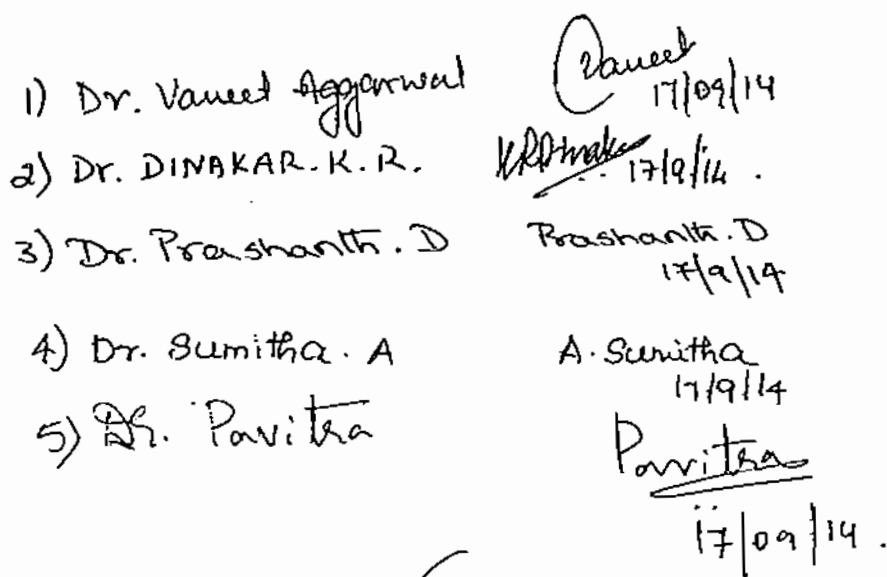 1) Dr. Vaneet Aggarwal Vaneet
17/09/14
2) Dr. DINAKAR. K. R. KRDinakar 17/9/14 .
3) Dr. Prashanth. D Prashanth. D
17/9/14
4) Dr. Sumitha. A A. Sumitha
17/9/14
5) Dr. Pavitra Pavitra
17/09/14 .